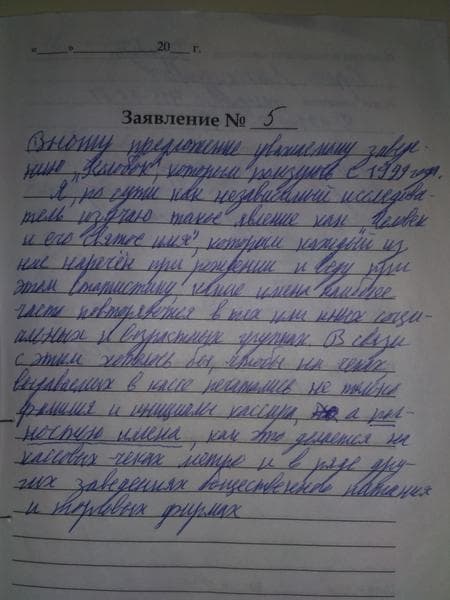 «____»____________20___ г.
Заявление № 5
Вношу предложение уважаемому заведе-
нию „Челобок", которым пользуюсь с 1999 года.
Я, по сути как независимый исследова-
тель изучаю такое явление как Человек
и его „святое имя", которым каждый из
нас наречён при рождении и веду при
этом статистику, какие имена наиболее
часто повторяются в тех или иных соци-
альных и возрастных группах. В связи
с этим хотелось бы, чтобы на чеках
выдаваемых в кассе печатались не только
фамилия и инициалы кассира, а пол-
ностью имена, как это делается на
кассовых чеках метро и в ряде дру-
гих заведениях общественного питания
и торговых фирмах